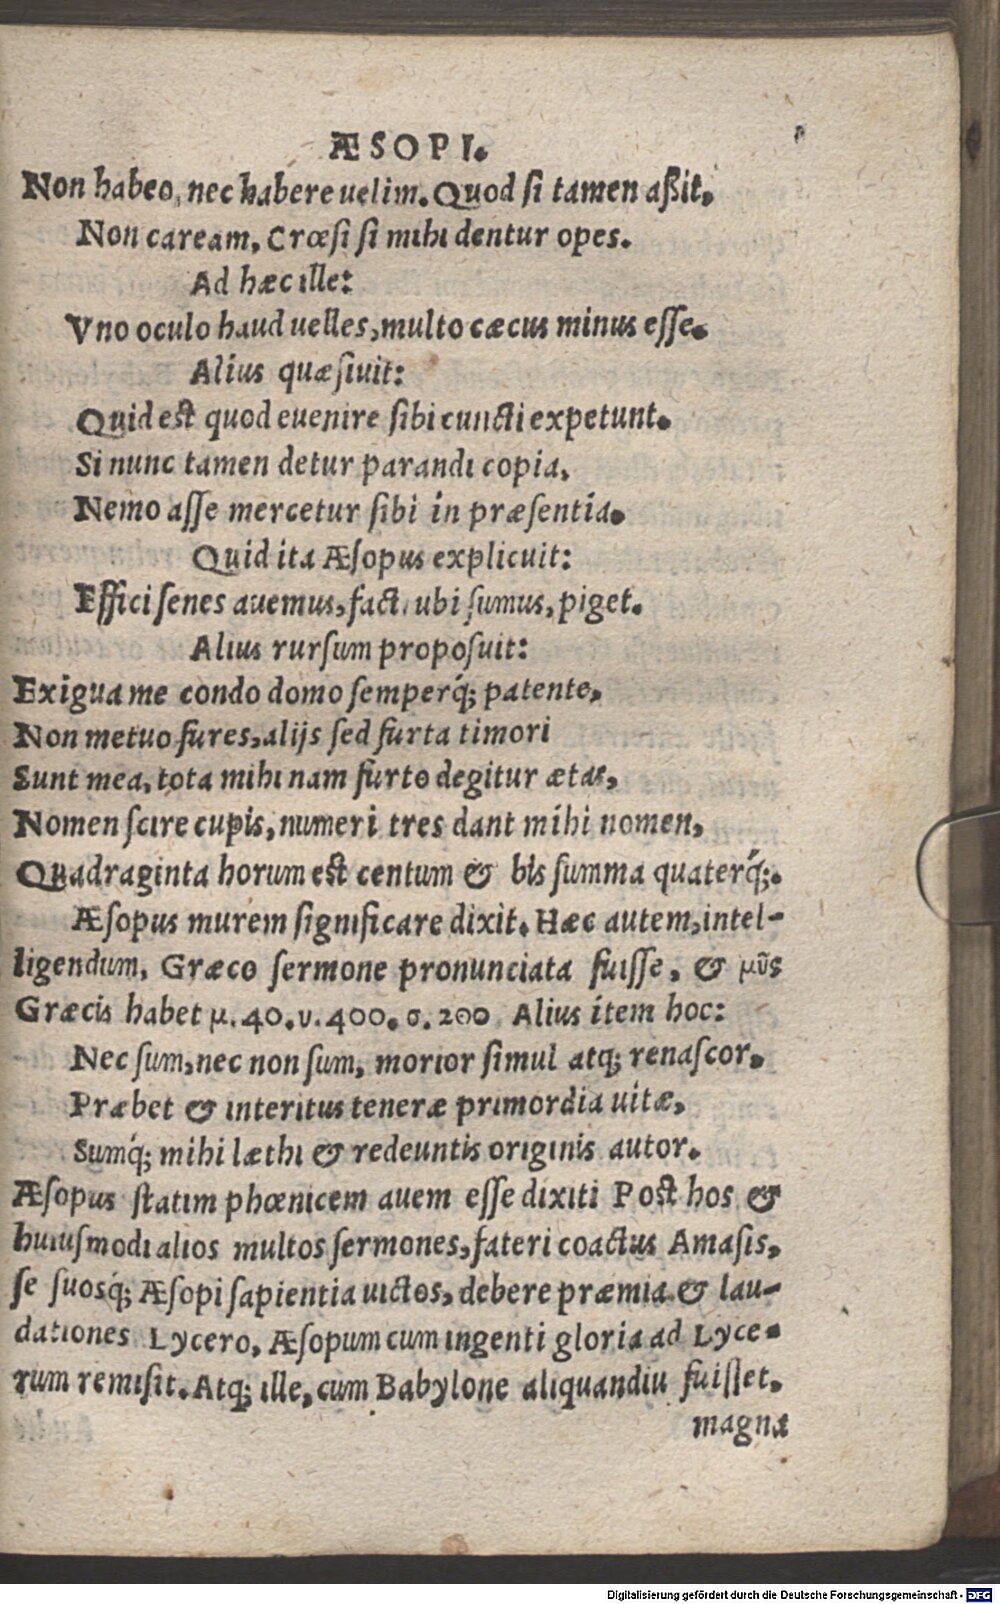 ÆSOPI.
Non habeo, nec habere uelim. Quod si tamen aßit,
Non caream, Crœsi si mihi dentur opes.
Ad hæc ille:
Vno oculo haud uelles, multo cæcus minus esse.
Alius quæsiuit:
Quid est quod euenire sibi cuncti expetunt.
Si nunc tamen detur parandi copia,
Nemo asse mercetur sibi in præsentia.
Quid ita Æsopus explicuit:
Effici senes auemus, facti ubi sumus, piget.
Alius rursum proposuit:
Exigua me condo domo semperq́; patente,
Non metuo fures, alijs sed furta timori
Sunt mea, tota mihi nam furto degitur ætas,
Nomen scire cupis, numeri tres dant mihi nomen,
Quadraginta horum est centum & bis summa quaterq́;.
Æsopus murem significare dixit. Hæc autem, intel-
ligendum, Græco sermone pronunciata fuisse, & μῦς
Græcis habet μ. 40. υ. 400. σ. 200 Alius item hoc:
Nec sum, nec non sum, morior simul atq; renascor,
Præbet & interitus teneræ primordia uitæ,
Sumq́; mihi læthi & redeuntis originis autor.
Æsopus statim phœnicem auem esse dixiti Post hos &
huiusmodi alios multos sermones, fateri coactus Amasis,
se suosq́; Æsopi sapientia uictos, debere præmia & lau-
dationes Lycero, Æsopum cum ingenti gloria ad Lyce-
rum remisit. Atq; ille, cum Babylone aliquandiu fuisset,
magna
Digitalisierung gefördert durch die Deutsche Forschungsgemeinschaft - DFG